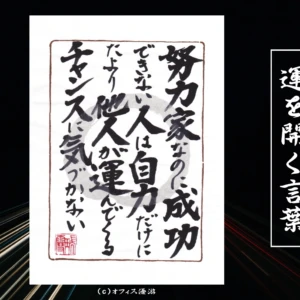 運を開く言葉
努力家なのに成功
できない人は自力だけに
たより他人が運んでくる
チャンスに気づかない
(c)オフィス海沼